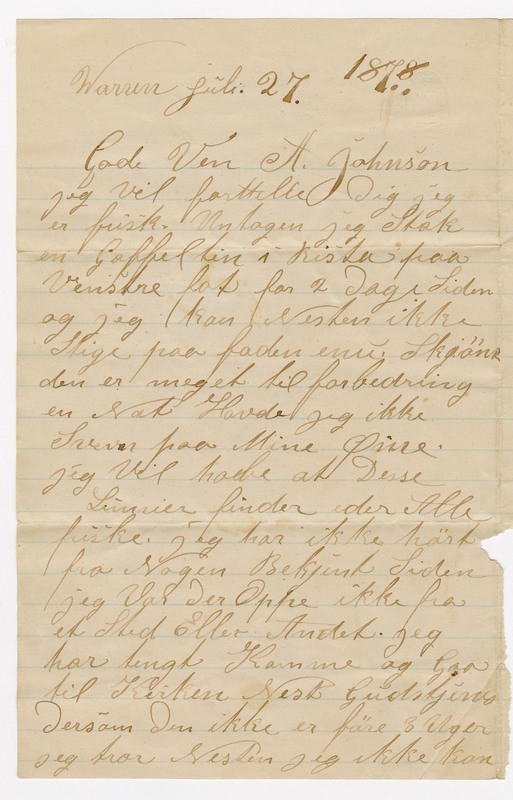 Warren juli. 27. 1878.
Gode Ven A. Johnson
jeg vil forttelle Dig jeg
er frisk. Untagen jeg Stak
en Gaffeltin i Rista paa
Venstre fot for 2 Dage Siden
og jeg kan Nesten ikke
Stige paa foden enu. Skjönt
den er meget til forbedring
en Nat Havde jeg ikke
Svevn paa Mine Øine.
jeg Vil haabe at Desse
Linnier finder eder Alle
friske. jeg har ikke hört
fra Nogen Bekjent Siden
jeg Var Der Oppe ikke fra
et Sted Eller Andet. jeg
har tengt Komme og Gaa
til Kirken Nest Gudstjenes
Dersom den ikke er före 3 Uger
jeg tror Nesten jeg ikke kan